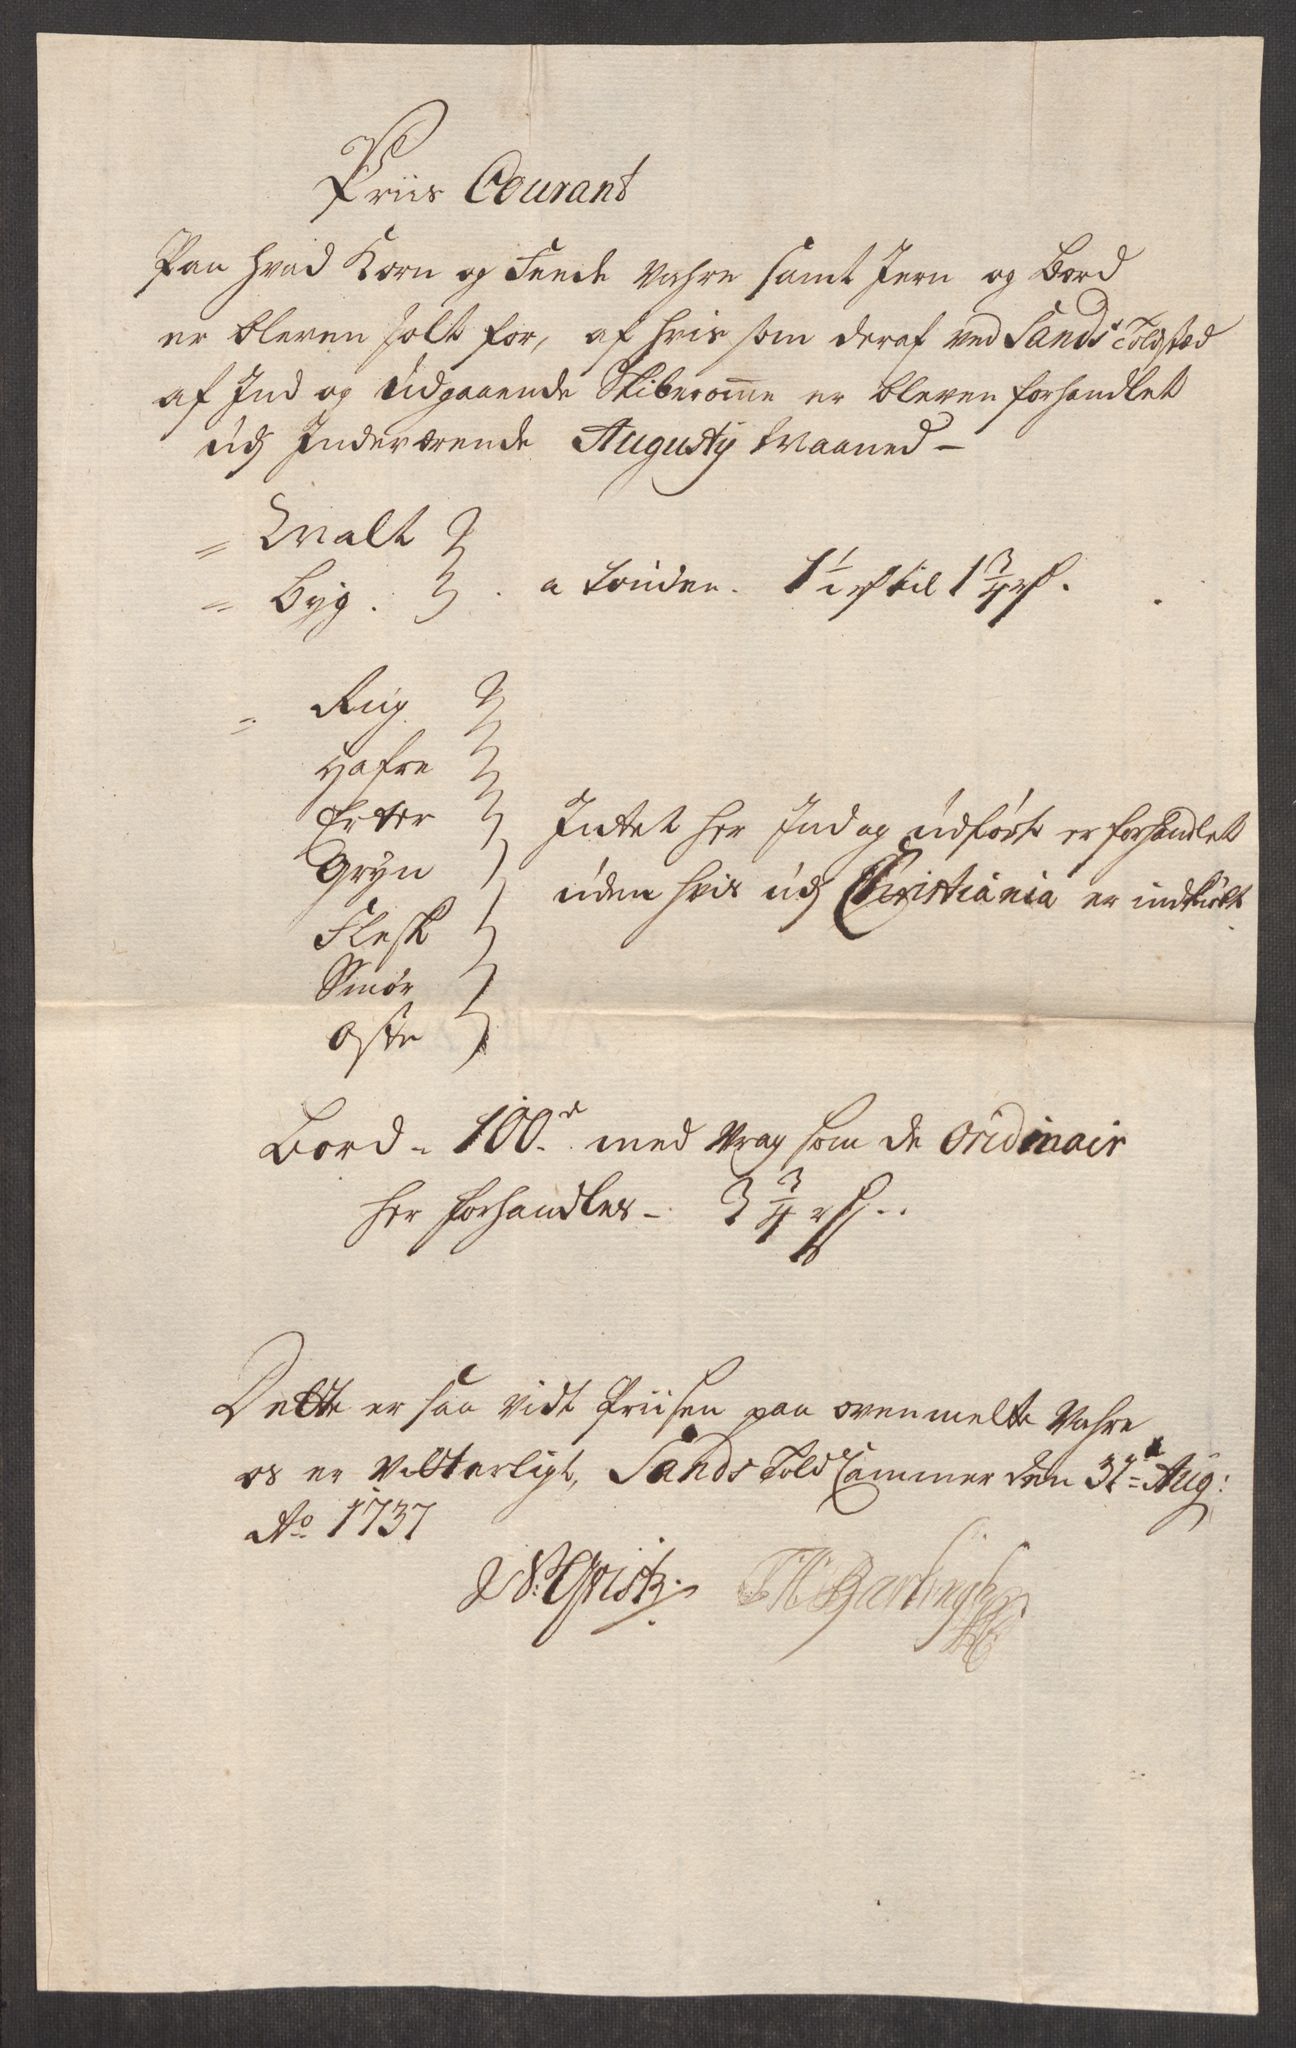 Priis Courant
Paa hvad Korn og Feede Vahre samt Jern og Bord
er bleven solt for, af hvis som deraf ved Sands Toldsted
af Ind og Udgaaende Skiberomme er bleven forhandlet
udj Indeværende Augusty Maaned -
= Malt
= Byg . a tønden . 1½ rdr til 1¾ rdr .
= Rug
Hafre
Erter Intet her Ind og udført er forhandlet
Gryn uden hvis udj Christiania er indkiøbt
Flesk
Smør
Oste
Bord - 100de med Vrag som de ordinair
her forhandles - 3¾ rdr ..
Dette er saa vidt Priisen paa ovenmelte Vahre
os er Vitterligt, Sands Told Cammer den 31te Aug:
Ao 1737